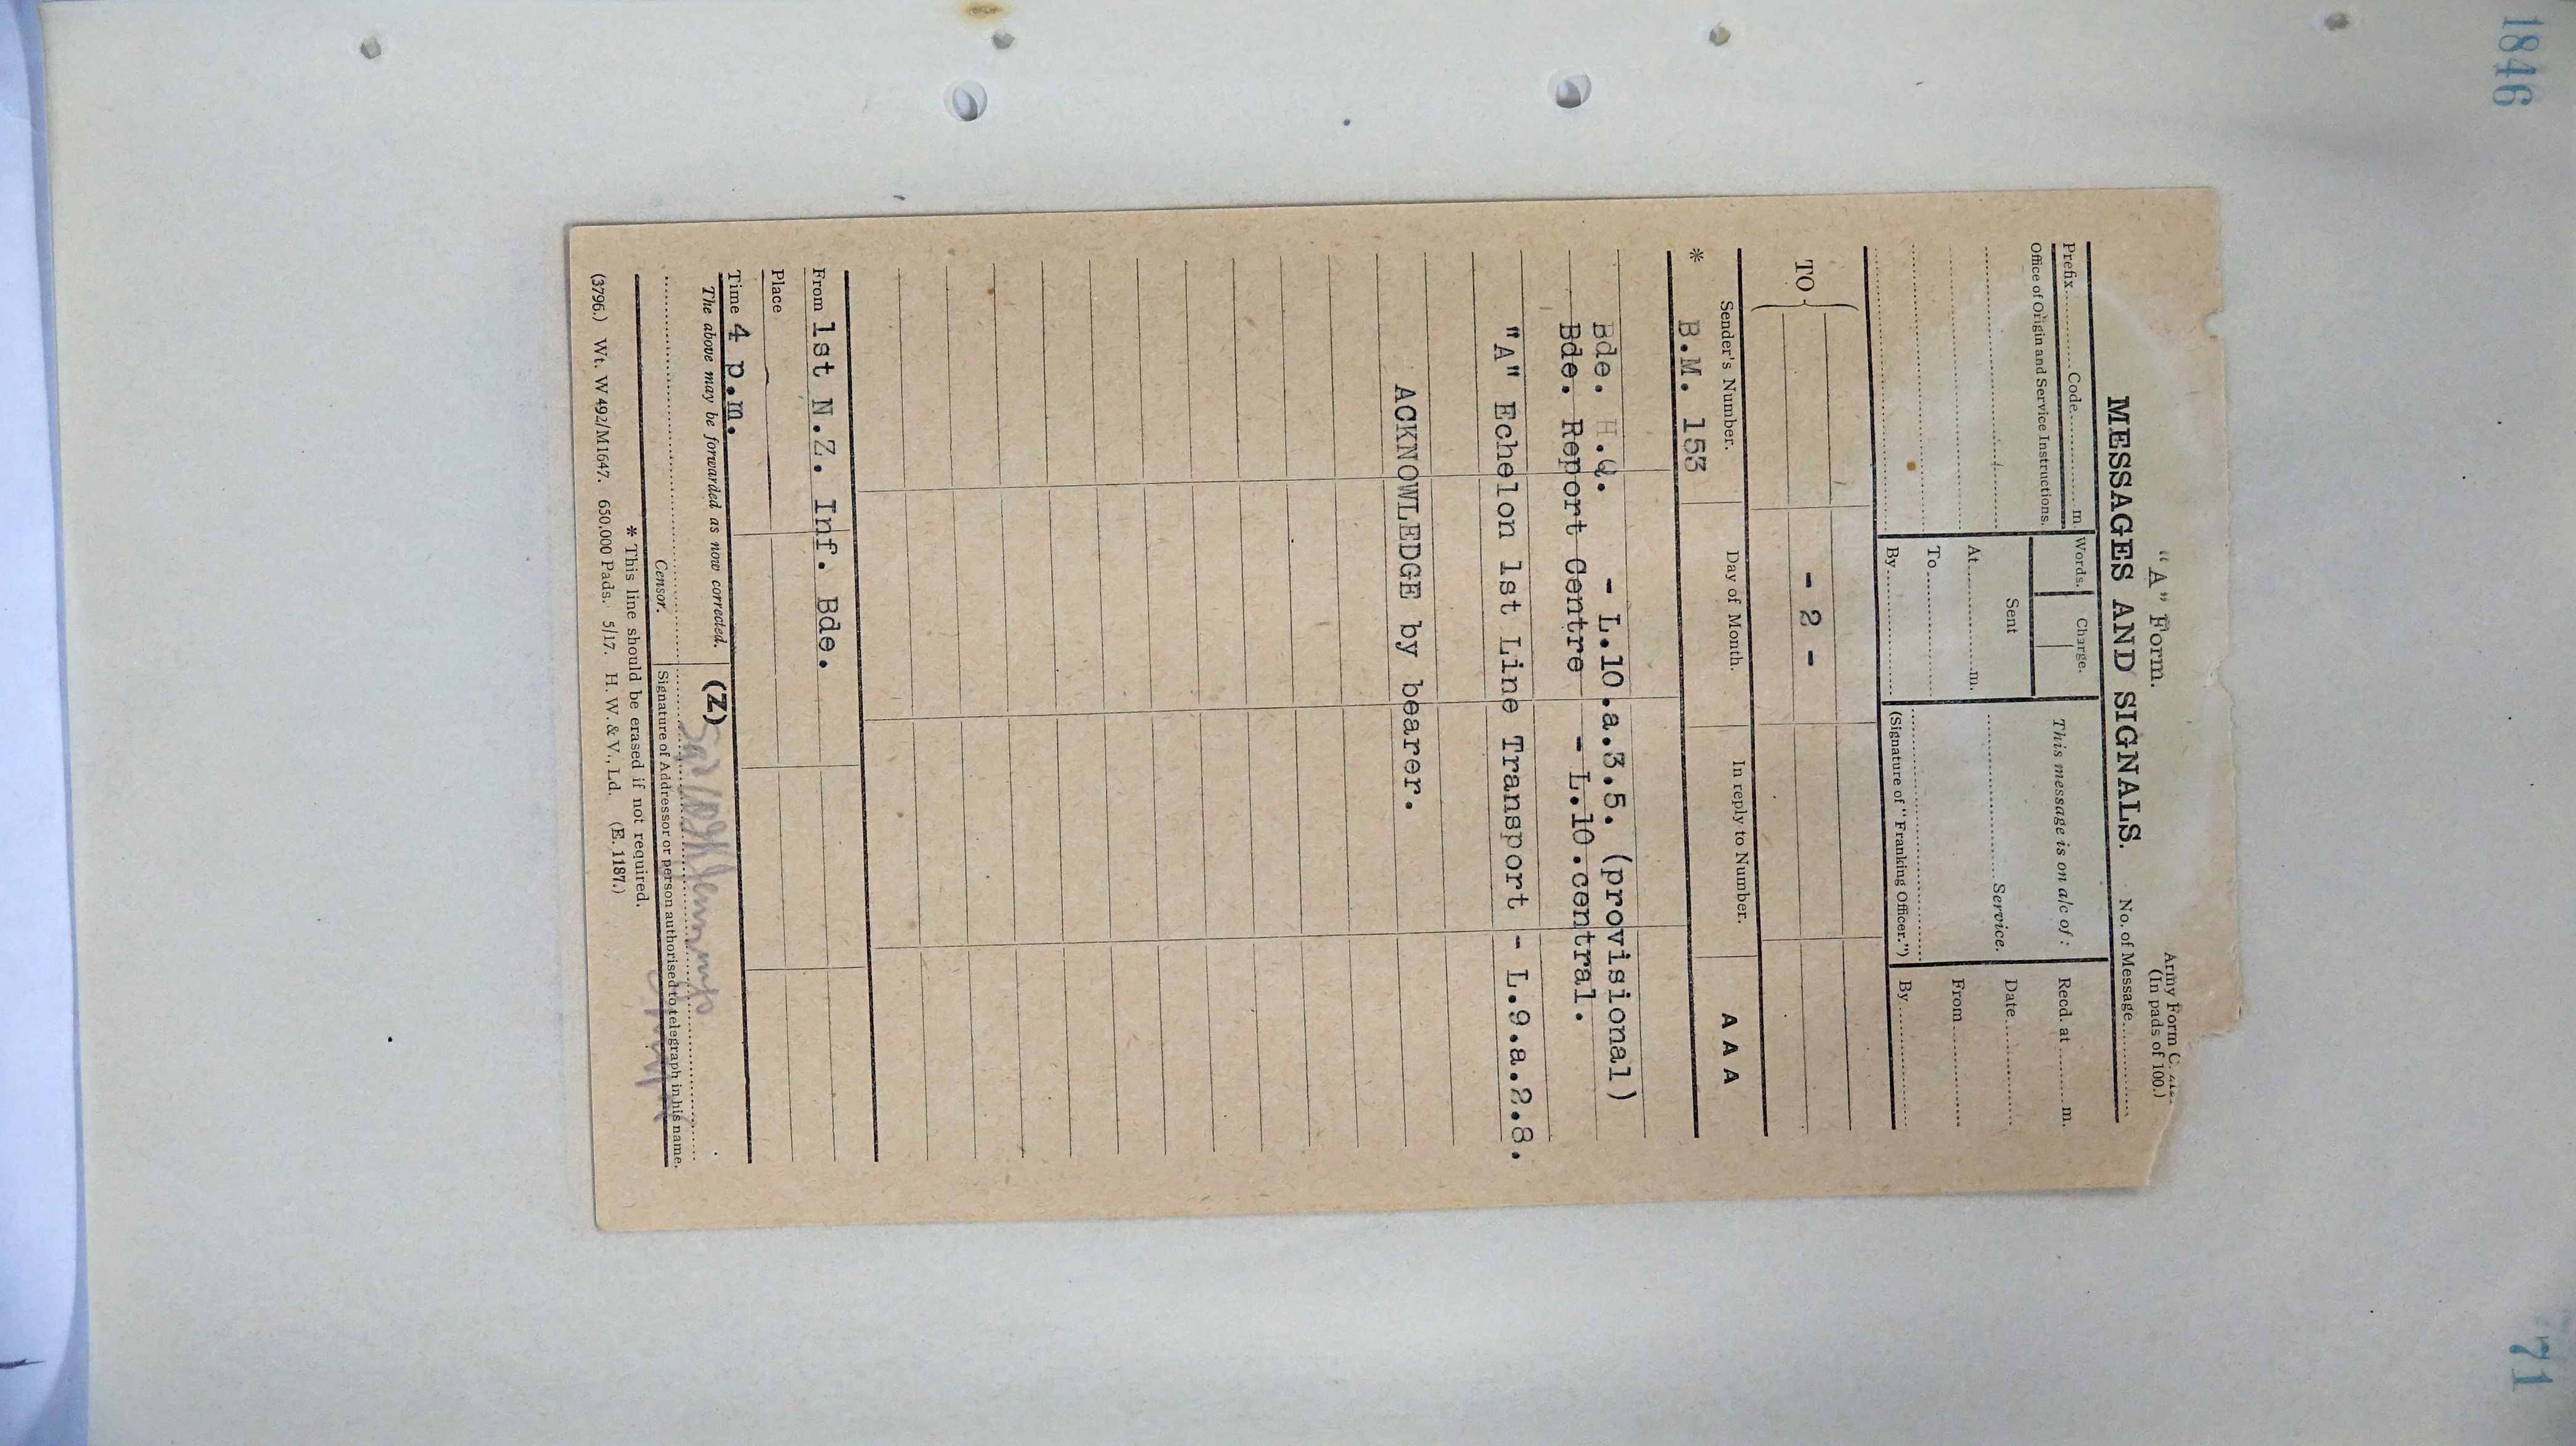 1846
71
"A" Form.
Army Form C.
(In pads of 100.)
MESSAGES AND SIGNALS.
No. of Message
Prefix Code m.
Words. Charge.
This message is on a/c of:
Recd. at m.
Office of Origin and Service Instructions.
Sent
Service.
Date
At m.
From
To
By
(Signature of "Franking Officer.")
By
TO
- 2 -
Sender's Number.
Day of Month.
In reply to Number.
A A A
* B.M. 153
Bde. H.Q. - L.10.a.3.5. (provisional)
Bde. Report Centre - L.10.central.
"A" Echelon 1st Line Transport - L.9.a.2.8.
ACKNOWLEDGE by bearer.
From 1st N.Z. Inf. Bde.
Place
Time 4 p.m.
The above may be forwarded as now corrected. (Z)
Censor.
Signature of Addressor or person authorised to telegraph in his name.
* This line should be erased if not required.
(3796.) Wt. W 492/M1647. 650,000 Pads. 5/17. H. W. & V., Ld. (E. 1187.)